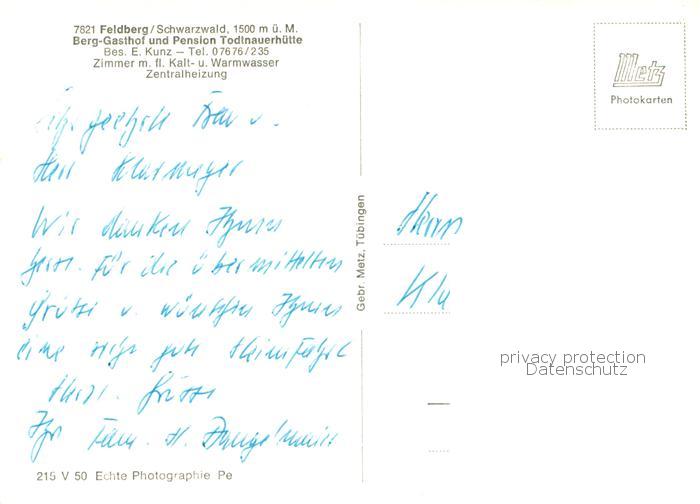 7821 Feldberg/Schwarzwald, 1500 m ü. M.
Berg-Gasthof und Pension Todtnauerhütte
Bes. E. Kunz – Tel. 07676/235
Zimmer m. fl. Kalt- u. Warmwasser
Zentralheizung
Metz
Photokarten
geehrte Frau u.
Herr
Wir danken Ihnen
herzl. für die übermittelten
Grüße u. wünschen Ihnen
eine sehr gute Heimfahrt
Herzl. Grüsse
Ihr Fam. H.
Gebr. Metz, Tübingen
Herrn
privacy protection
Datenschutz
215 V 50 Echte Photographie Pe